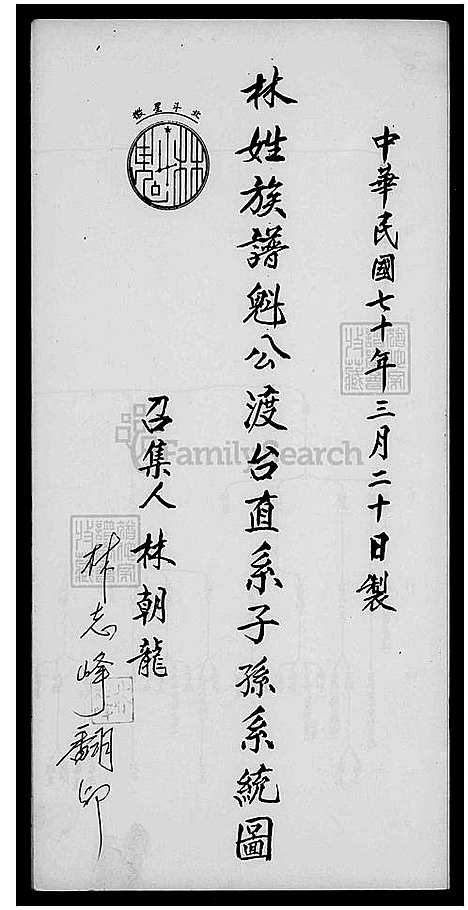 中華民國七十年三月二十日製
林姓族譜魁公渡台直系子孫系統圖
北斗星徽
林魁
召集人林朝龍
林志峰翻印
FamilySearch